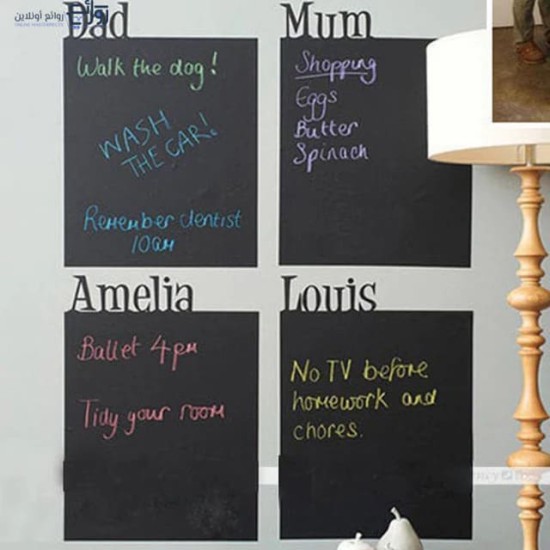 روائع
روائع أونلاين
Dad
Walk the dog!
WASH
THE CAR!
Remember dentist
10am
Mum
Shopping
Eggs
Butter
Spinach
Amelia
Ballet 4pm
Tidy your room
Louis
No TV before
homework and
chores.